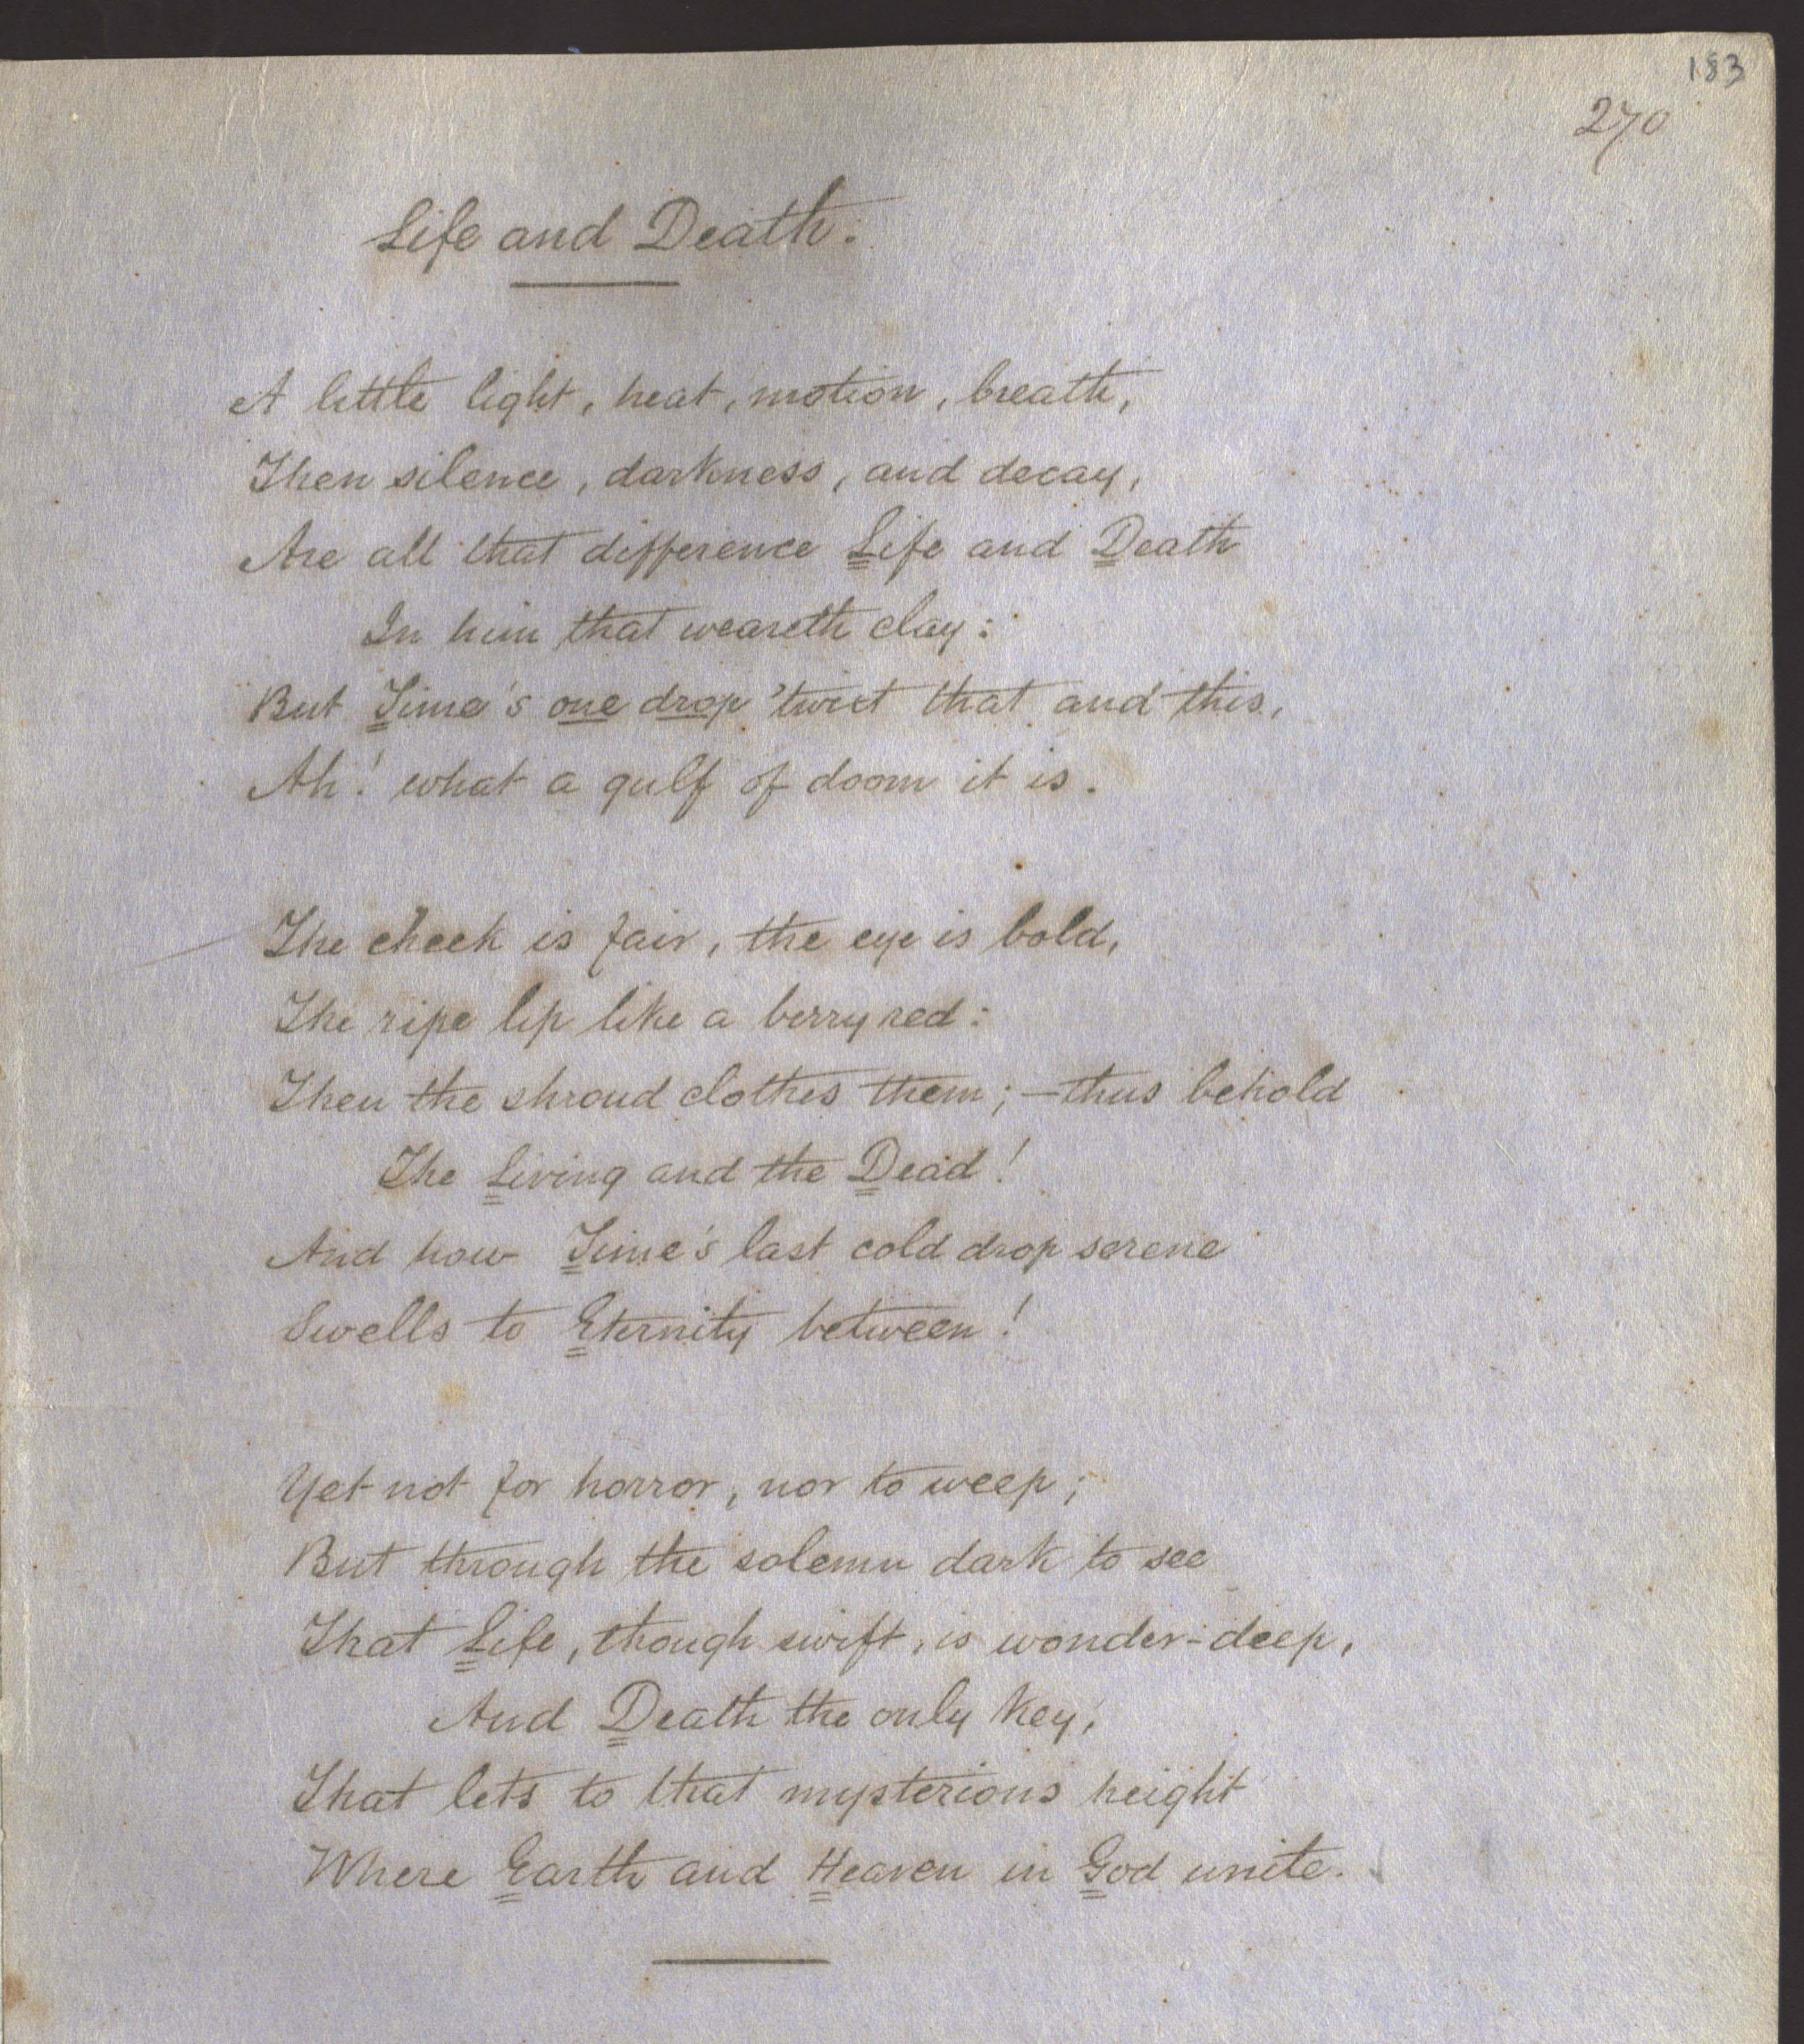 183
270
Life and Death.
A little light, heat, motion, breath,
Then silence, darkness, and decay,
Are all that difference Life and Death
In him that weareth clay:
But Time's one drop 'twixt that and this,
Ah! what a gulf of doom it is.
The cheek is fair, the eye is bold,
The ripe lip like a berry red:
Then the shroud clothes them; — thus behold
The Living and the Dead!
And how Time's last cold drop serene
Swells to Eternity between!
Yet not for horror, nor to weep;
But through the solemn dark to see
That Life, though swift, is wonder-deep,
And Death the only key,
That lets to that mysterious height
Where Earth and Heaven in God unite.